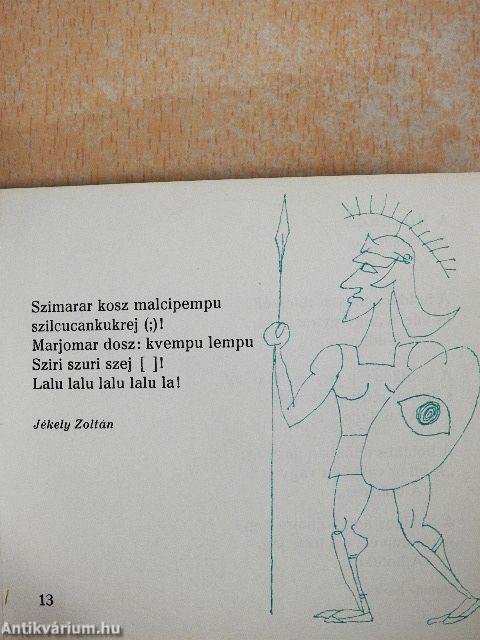 Szimarar kosz malcipempu
szilcucankukrej (;)!
Marjomar dosz: kvempu lempu
Sziri szuri szej [ ]!
Lalu lalu lalu lalu la!
Jékely Zoltán
13
Antikvárium.hu